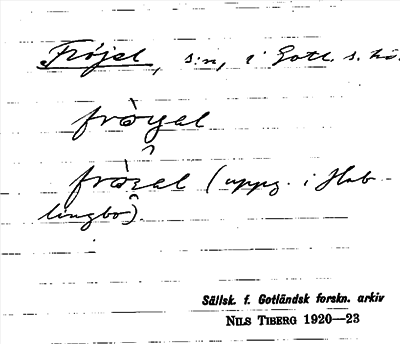 Fröjel, s:n, i Gotl. s. hä.
fròyel
fròzal (uppg. i Hab-
lingbo).
Sällsk. f. Gotländsk forskn. arkiv
NILS TIBERG 1920—23